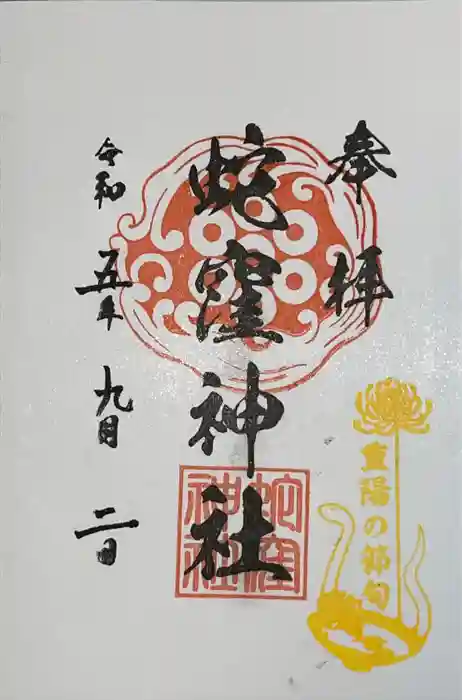 奉拝
蛇窪神社
蛇窪神社
令和五年九月二日
重陽の節句